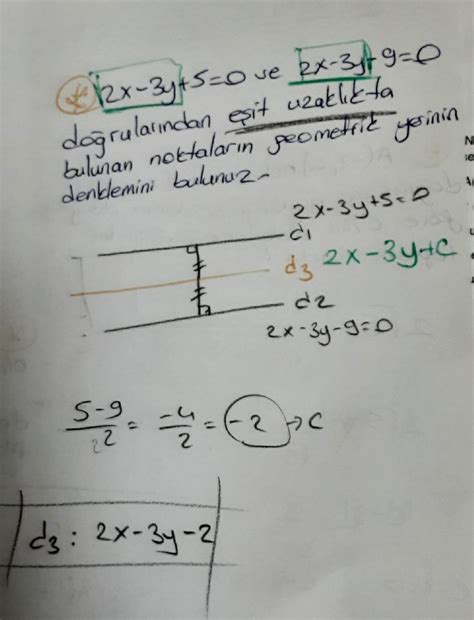 2x-3y+5=0 ve 2x-3y+9=0
doğrularından eşit uzaklıkta
bulunan noktaların geometrik yerinin
denklemini bulunuz.
2x-3y+5=0
d1
d3 2x-3y+C
d2
2x-3y-9=0
5-9/2 = -4/2 = -2 → C
d3: 2x-3y-2